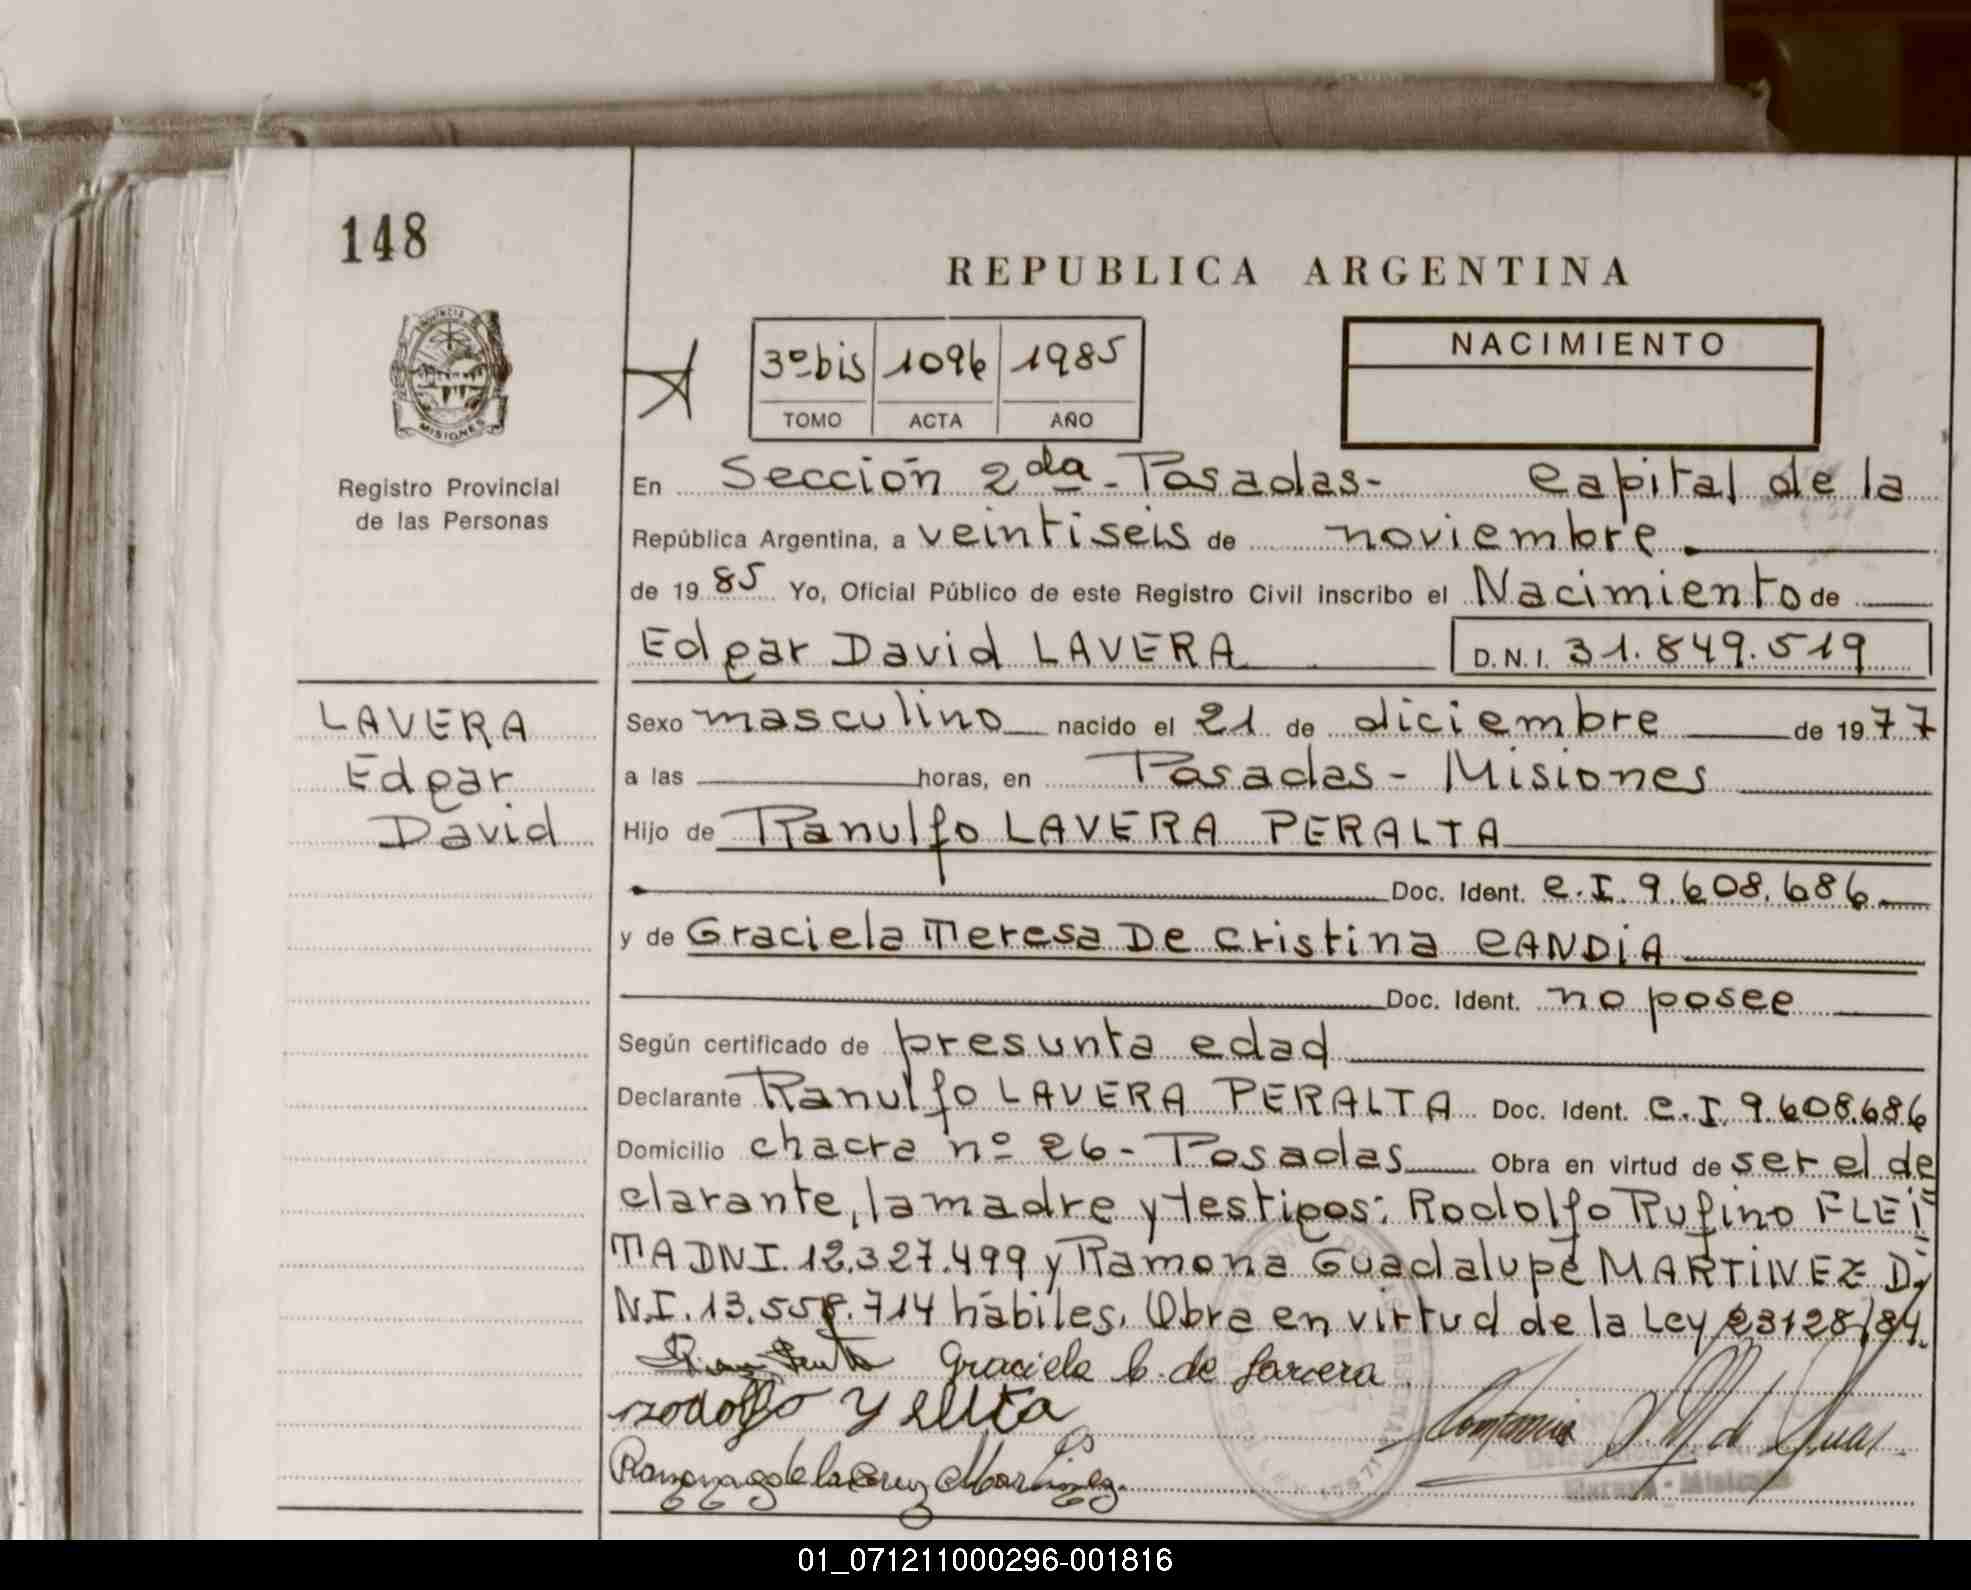 148
REPUBLICA ARGENTINA
PROVINCIA DE
MISIONES
Registro Provincial
de las Personas
3º bis 1096 1985
TOMO ACTA AÑO
NACIMIENTO
En Sección 2da - Posadas - Capital de la
República Argentina, a veintiseis de noviembre
de 1985 Yo, Oficial Público de este Registro Civil inscribo el Nacimiento de
Edgar David LAVERA D.N.I. 31.849.519
LAVERA
Edgar
David
Sexo masculino nacido el 21 de diciembre de 1977
a las horas, en Posadas - Misiones
Hijo de Ranulfo LAVERA PERALTA
Doc. Ident. C.I. 9.608.686
y de Graciela Teresa De Cristina CANDIA
Doc. Ident. no posee
Según certificado de presunta edad
Declarante Ranulfo LAVERA PERALTA Doc. Ident. C.I. 9.608.686
Domicilio chacra nº 26 - Posadas Obra en virtud de ser el de
clarante, la madre y testigos: Rodolfo Rufino FLEI
TA DNI. 12.327.499 y Ramona Guadalupe MARTINEZ D.
N.I. 13.558.714 hábiles. Obra en virtud de la Ley 23128/84.
Graciela C. de
Rodolfo
Martinez
01_071211000296-001816